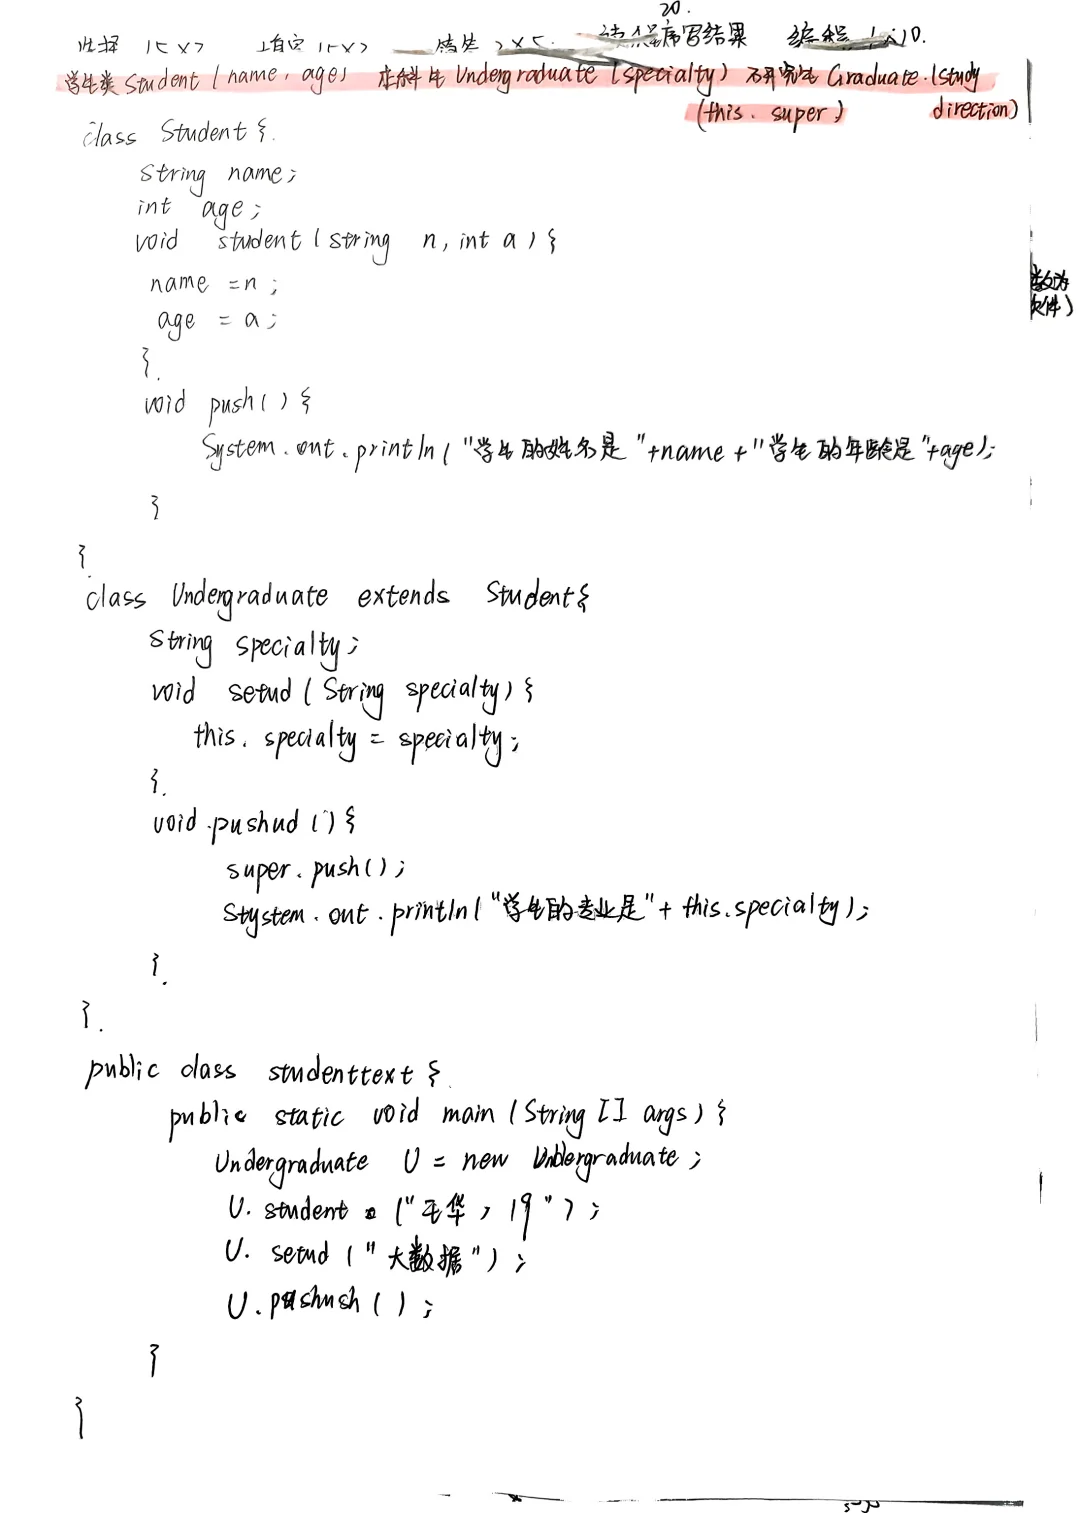 20.
选择 15×2 填空 15×2 简答 2×5. 读程序写结果 编程 10.
学生类 Student (name, age) 本科生 Undergraduate (specialty) 研究生 Graduate. (study
(this. super) direction)
class Student {
String name;
int age;
void student (string n, int a) {
数为
文件)
name = n;
age = a;
}.
void push() {
System.out.println("学生的姓名是"+name+"学生的年龄是"+age);
}
}.
class Undergraduate extends Student{
String specialty;
void setud (String specialty) {
this. specialty = specialty;
}.
void pushud () {
super. push();
Stystem.out.println("学生的专业是"+ this.specialty);
}.
}.
public class studenttext {
public static void main (String [] args) {
Undergraduate U = new Undergraduate;
U. student ("王华, 19");
U. setud ("大数据");
U. pushush ();
}
}